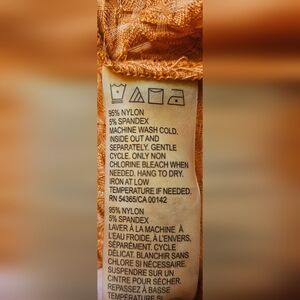 95% NYLON
5% SPANDEX
MACHINE WASH COLD.
INSIDE OUT AND
SEPARATELY. GENTLE
CYCLE. ONLY NON
CHLORINE BLEACH WHEN
NEEDED. HANG TO DRY.
IRON AT LOW
TEMPERATURE IF NEEDED.
RN 54365/CA 00142
95% NYLON
5% SPANDEX
LAVER À LA MACHINE À
L'EAU FROIDE, À L'ENVERS,
SÉPARÉMENT. CYCLE
DÉLICAT. BLANCHIR SANS
CHLORE SI NÉCESSAIRE.
SUSPENDRE SUR UN
CINTRE POUR SÉCHER.
REPASSEZ À BASSE
TEMPÉRATURE SI